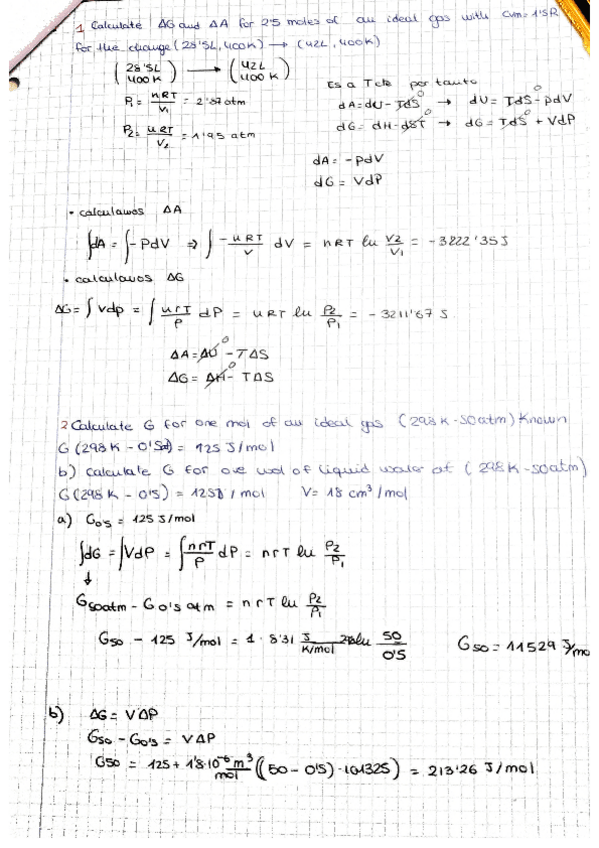 1 Calculate ΔG and ΔA for 2'5 moles of an ideal gas with Cvm = 1'5R
for the change (28'5L, 400K) → (42L, 400K)
(28'5L 400K) → (42L 400K)
Es a T cte por tanto
P1 = nRT/V1 = 2'87 atm
dA = dU - TdS⁰ → dU = TdS⁰ - PdV
P2 = nRT/V2 = 1'95 atm
dG = dH - dST⁰ → dG = TdS⁰ + VdP
dA = -PdV
dG = VdP
• calculamos ΔA
∫dA = ∫-PdV ⇒ ∫ -nRT/V dV = nRT ln V2/V1 = -3222'35J
• calculamos ΔG
ΔG = ∫Vdp = ∫ nrT/P dP = nRT ln P2/P1 = -3211'67 J
ΔA = ΔU⁰ - TΔS
ΔG = ΔH⁰ - TΔS
2 Calculate G for one mol of an ideal gas (298K-50atm) Known
G (298K - 0'5at) = 125 J/mol
b) Calculate G for one mol of liquid water at (298K-50atm)
G(298K - 0'5) = 125J/mol V = 18 cm³/mol
a) G0's = 125 J/mol
∫dG = ∫VdP = ∫ nrT/P dP = nrT ln P2/P1
↓
G50atm - G0's atm = nrT ln P2/P1
G50 - 125 J/mol = 1 · 8'31 J/K/mol 298 ln 50/0'5 G50 = 11529 J/mo
b) ΔG = VΔP
G50 - G0's = VΔP
G50 = 125 + 1'8·10⁻⁶ m³/mol ((50 - 0'5)·101325) = 213'26 J/mol